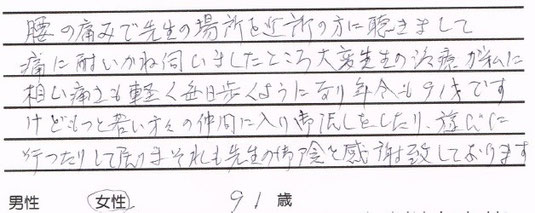 腰の痛みで先生の場所を近所の方に聴きまして
痛に耐いかね伺いましたところ大変先生の治療が私に
相い痛さも軽く毎日歩くようになり年令も91才です
けどもっと若い方々の仲間に入り御話しをしたり、遊びに
行ったりして居りまそれも先生の御陰と感謝致しております
男性 女性 91歳